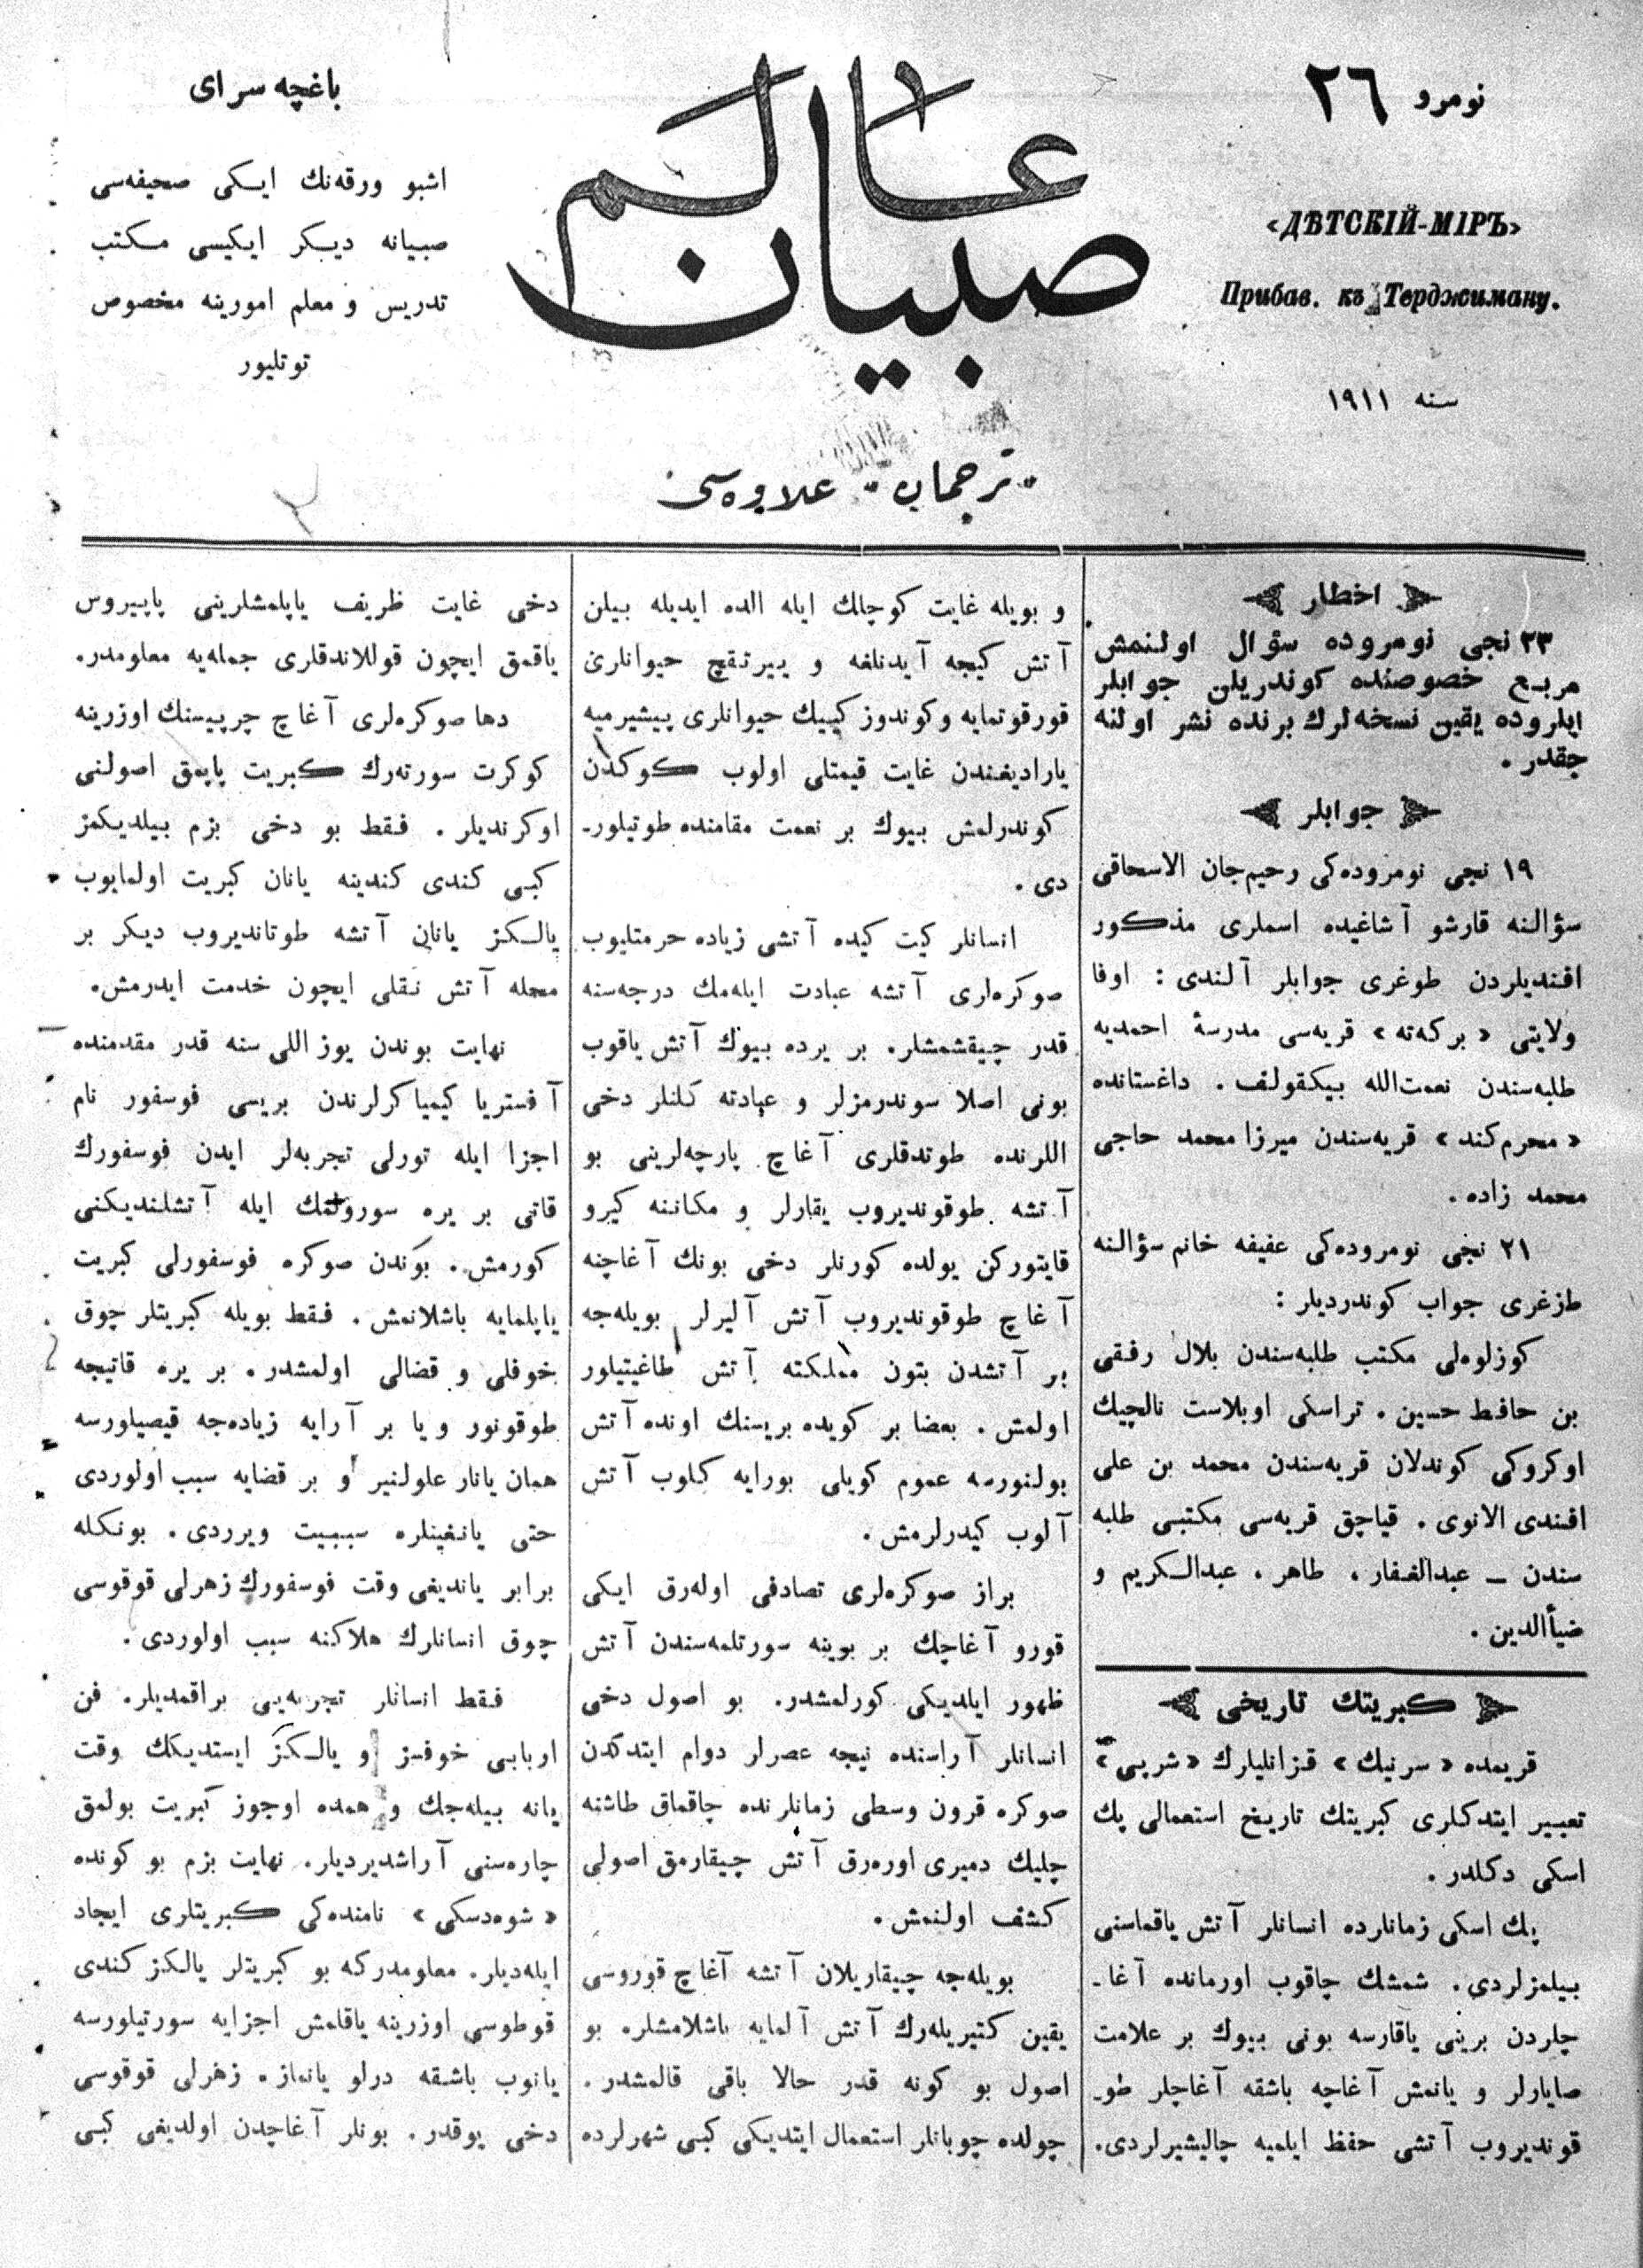 نومرو ٢٦
«ДѢТСКІЙ-МІРЪ»
Прибав. къ Терджиману.
سنه ١٩١١
عالم
صبيان
«ترجمان» علاوه‌سى
باغچه سراى
اشبو ورقه‌نك ايكى صحيفه‌سى
صبيانه ديكر ايكيسى مكتب
تدريس و معلم امورينه مخصوص
توتليور
اخطار
٢٣ نجى نومروده سؤال اولنمش
مربع خصوصنده كوندريلن جوابلر
ايلروده يقين نسخه‌لرك برنده نشر اولنه
جقدر .
جوابلر
١٩ نجى نومروده‌كى رحيم‌جان الاسحاقى
سؤالنه قارشو آشاغيده اسملرى مذكور
افنديلردن طوغرى جوابلر آلندى : اوفا
ولايتى «بركه‌ته» قريه‌سى مدرسهٔ احمديه
طلبه‌سندن نعمت‌الله بيكقولف . داغستانده
«محرم‌كند» قريه‌سندن ميرزا محمد حاجى
محمد زاده .
٢١ نجى نومروده‌كى عفيفه خانم سؤالنه
طزغرى جواب كوندرديلر :
كوزلوه‌لى مكتب طلبه‌سندن بلال رفقى
بن حافظ حسين . تراسكى اوبلاست نالچيك
اوكروكى كوندلان قريه‌سندن محمد بن على
افندى الانوى . قياچق قريه‌سى مكتبى طلبه
سندن — عبدالغفار ، طاهر ، عبدالكريم و
ضياًالدين .
كبريتك تاريخى
قريمده «سرنيك» قزانليلرك «شرپى»
تعبير ايتدكلرى كبريتك تاريخ استعمالى پك
اسكى دكلدر .
پك اسكى زمانلرده انسانلر آتش ياقماسنى
بيلمزلردى . شمشك چاقوب اورمانده آغا-
چلردن برينى ياقارسه بونى بيوك بر علامت
صايارلر و يانمش آغاچه باشقه آغاچلر طو-
قونديروب آتشى حفظ ايلميه چاليشيرلردى.
و بويله غايت كوچلك ايله الده ايديله بيلن
آتش كيجه آيدنلغه و ييرتقچ حيوانلرى
قورقوتمايه و كوندوز كييك حيوانلرى پيشيرميه
ياراديغندن غايت قيمتلى اولوب كوكدن
كوندرلمش بيوك بر نعمت مقامنده طوتيلور-
دى .
انسانلر كيت كيده آتشى زياده حرمتليوب
صوكره‌لرى آتشه عبادت ايله‌مك درجه‌سنه
قدر چيقشمشلر. بر يرده بيوك آتش ياقوب
بونى اصلا سوندرمزلر و عبادته كلنلر دخى
اللرنده طوتدقلرى آغاچ پارچه‌لرينى بو
آتشه طوقونديروب يقارلر و مكاننه كيرو
قايتوركن يولده كورنلر دخى بونك آغاچنه
آغاچ طوقونديروب آتش آليرلر بويله‌جه
بر آتشدن بتون مملكته آتش طاغيتيلور
اولمش . بعضا بر كويده بريسنك اونده آتش
بولنورسه عموم كويلى بورايه كلوب آتش
آلوب كيدرلرمش .
براز صوكره‌لرى تصادفى اوله‌رق ايكى
قورو آغاچك بر بوينه سورتلمه‌سندن آتش
ظهور ايلديكى كورلمشدر. بو اصول دخى
انسانلر آراسنده نيجه عصرلر دوام ايتدكدن
صوكره قرون وسطى زمانلرنده چاقماق طاشنه
چليك دميرى اوره‌رق آتش چيقارمق اصولى
كشف اولنمش.
بويله‌جه چيقاريلان آتشه آغاچ قوروسى
يقين كتيريله‌رك آتش آلمايه باشلامشلر. بو
اصول بو كونه قدر حالا باقى قالمشدر.
چولده چوبانلر استعمال ايتديكى كبى شهرلرده
دخى غايت ظريف ياپلمشلرينى پاپيروس
ياقمق ايچون قوللاندقلرى جمله‌يه معلومدر.
دها صوكره‌لرى آغاچ چرپيسنك اوزرينه
كوكرت سورته‌رك كبريت ياپمق اصولنى
اوكرنديلر . فقط بو دخى بزم بيلديكمز
كبى كندى كندينه يانان كبريت اولمايوب
يالكز يانان آتشه طوتانديروب ديكر بر
محله آتش نقلى ايچون خدمت ايدرمش.
نهايت بوندن يوز اللى سنه قدر مقدمنده
آفستريا كيمياكرلرندن بريسى فوسفور نام
اجزا ايله تورلى تجربه‌لر ايدن فوسفورك
قاتى بر يره سورولمك ايله آتشلنديكنى
كورمش. بوندن صوكره فوسفورلى كبريت
ياپلمايه باشلانمش . فقط بويله كبريتلر چوق
خوفلى و قضالى اولمشدر. بر يره قاتيجه
طوقونور و يا بر آرايه زياده‌جه قيصيلورسه
همان يانار علولنير و بر قضايه سبب اولوردى
حتى يانغينلره سببيت ويرردى. بونكله
برابر يانديغى وقت فوسفورك زهرلى قوقوسى
چوق انسانلرك هلاكنه سبب اولوردى .
فقط انسانلر تجربه‌يى براقمديلر. فن
اربابى خوفسز و يالكز ايستديكك وقت
يانه بيله‌جك و همده اوجوز كبريت بولمق
چاره‌سنى آراشديرديلر. نهايت بزم بو كونده
«شوه‌دسكى» نامنده‌كى كبريتلرى ايجاد
ايله‌ديلر. معلومدركه بو كبريتلر يالكز كندى
قوطوسى اوزرينه ياقلمش اجزايه سورتيلورسه
يانوب باشقه درلو يانماز. زهرلى قوقوسى
دخى يوقدر. بونلر آغاچدن اولديغى كبى